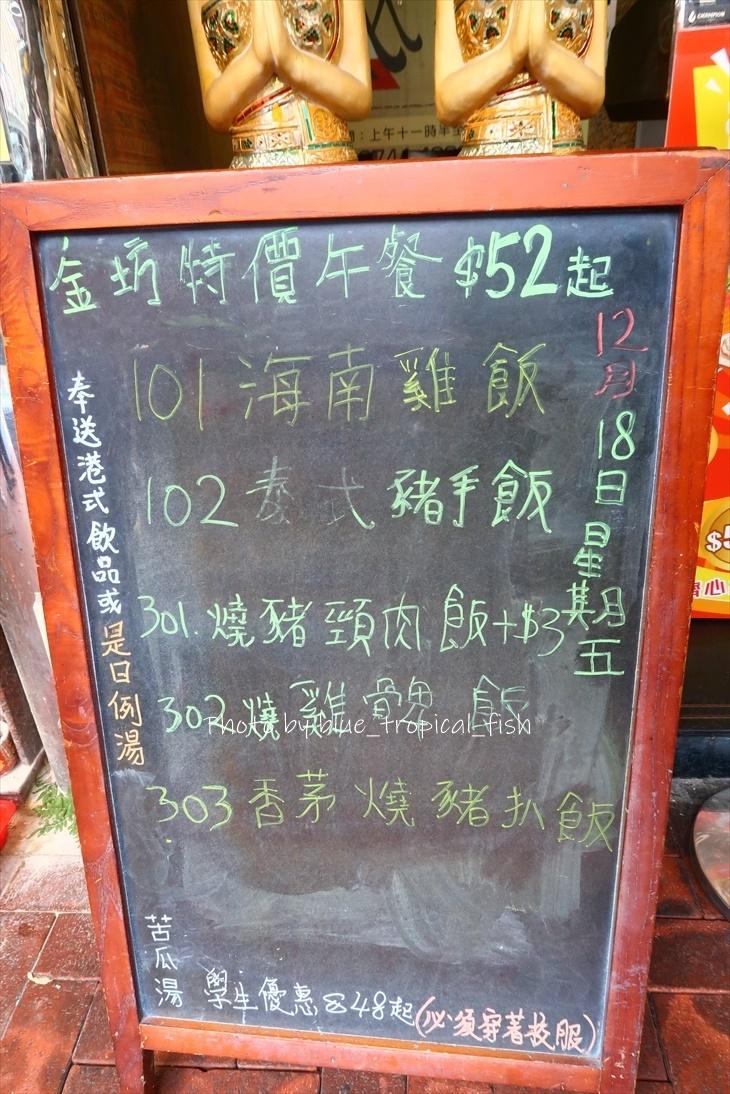 ：上午十一時半至
CHAMPION
金坊特價午餐 $52起
12月18日 星期五
101 海南雞飯
102 泰式豬手飯
301. 燒豬頸肉飯+$3
302 燒雞髀飯
303 香茅燒豬扒飯
奉送港式飲品或是日例湯
苦瓜湯
學生優惠$48起(必須穿著校服)
Photo by blue_tropical_fish